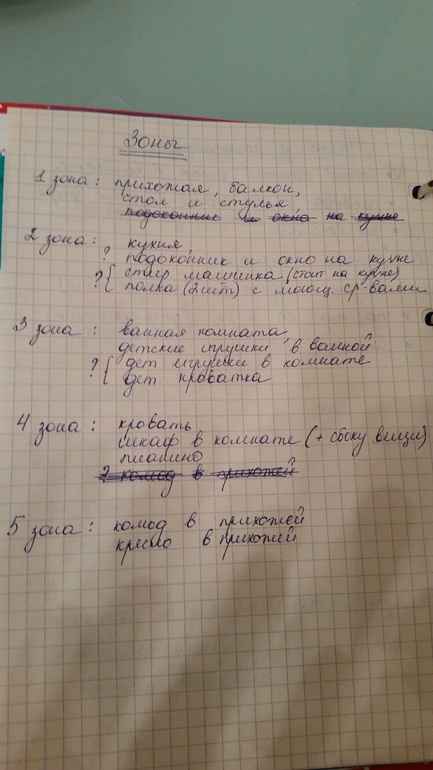 Зоны
1 зона: прихожая, балкон,
стол и стулья
подоконник и окно на кухне
2 зона: кухня,
? подоконник и окно на кухне
?{ стир. машинка (стоит на кухне)
полка (2шт) с моющ. ср-вами
3 зона: ванная комната,
детские игрушки в ванной
?{ дет игрушки в комнате
дет кроватка
4 зона: кровать
шкаф в комнате (+ сбоку вещи)
пианино
? комод в прихожей
5 зона: комод в прихожей
кресло в прихожей